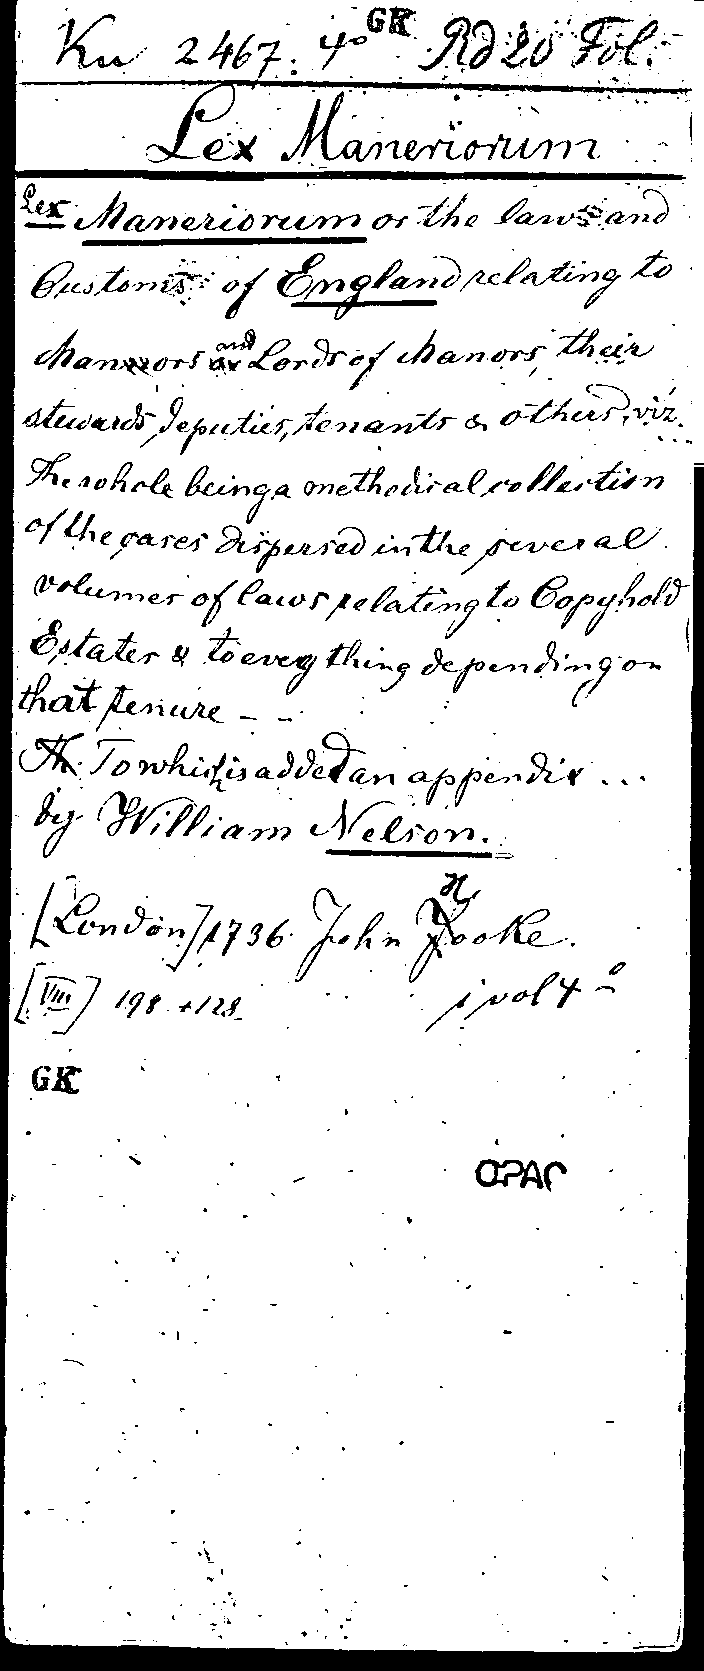 Ku 2467. 4° GK Rd 20 Fol.
Lex Maneriorum
Lex Maneriorum or the laws and
Customs of England relating to
Mannors and Lords of Manors, their
stewards, deputies, tenants & others, viz.
The whole being a methodical collection
of the cases dispersed in the several
volumes of laws relating to Copyhold
Estates & to every thing depending on
that tenure - -
To which is added an appendix ...
by William Nelson.
[London] 1736 John Nooke.
[VIII] 198 + 128 1 vol 4°
GK
OPAC